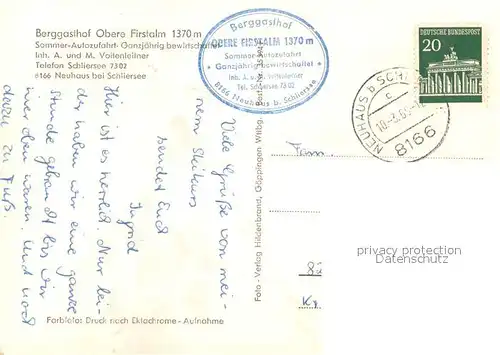 Berggasthof Obere Firstalm 1370 m
Sommer-Autozufahrt - Ganzjährig bewirtschaftet
Inh. A. und M. Voitenleitner
Telefon Schliersee 7302
8166 Neuhaus bei Schliersee
Berggasthof
OBERE FIRSTALM 1370 m
Sommer-Autozufahrt
Ganzjährig bewirtschaftet
Inh. A. u. M. Voitenleitner
Tel. Schliersee 7302
8166 Neuhaus b. Schliersee
DEUTSCHE BUNDESPOST
20
NEUHAUS b SCH
8166
Viele Grüße von mei-
nem Skikurs
sendet Euch
Ingrid
Hier ist es herrlich. Nur lei-
der haben wir eine ganze
Stunde gebraucht bis wir
hier oben waren. Und noch
dazu zu Fuß.
Fam.
Foto - Verlag Hildenbrand, Göppingen Wttbg.
Farbfoto: Druck nach Ektachrome - Aufnahme
privacy protection
Datenschutz